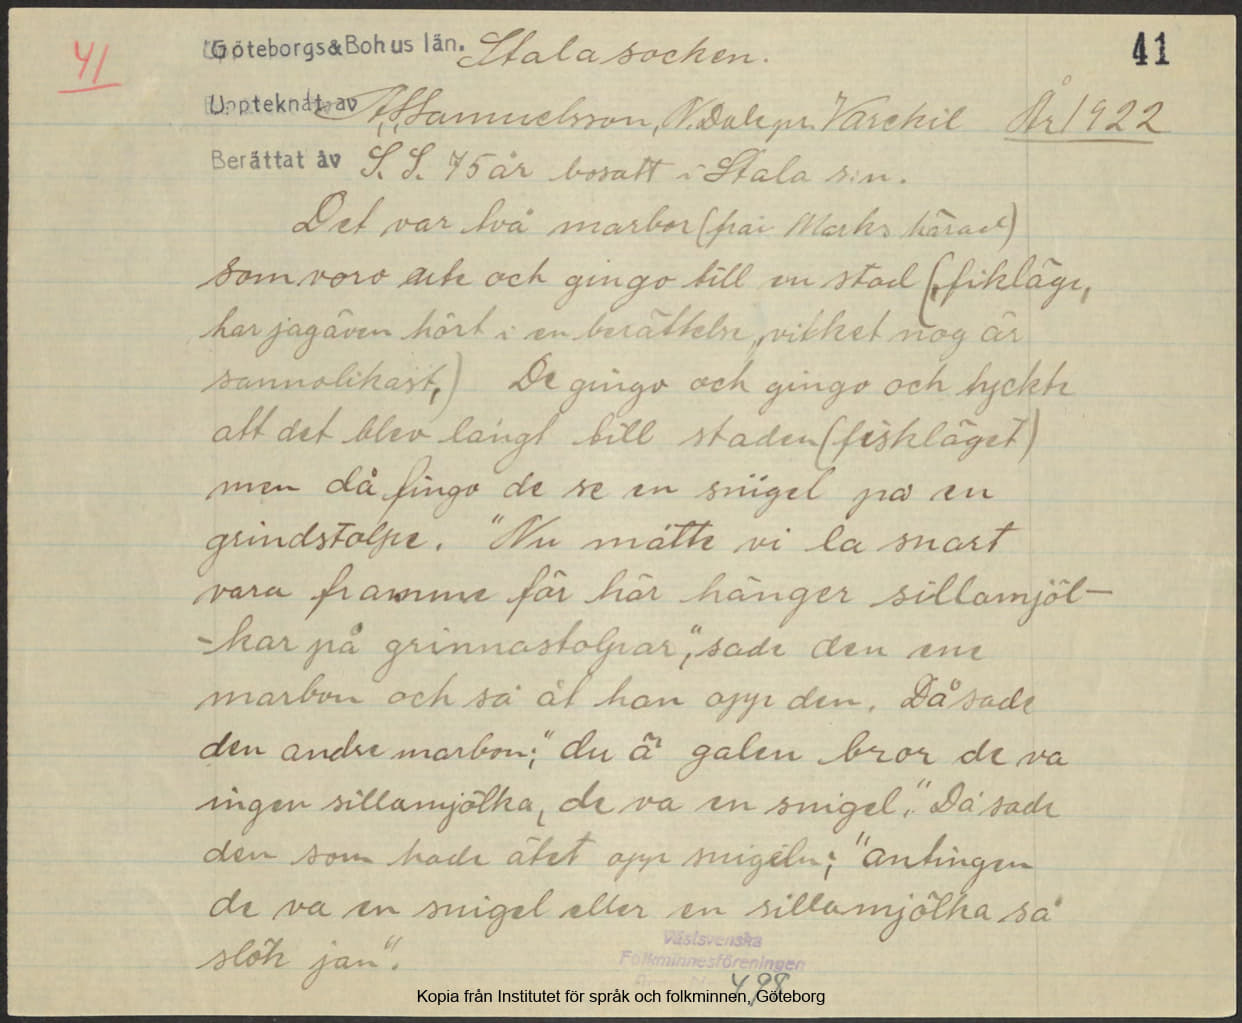 41 Göteborgs & Bohus län. Stala socken. 41
Uppteknat av A. Samuelsson, N. Dalepr. Varekil År 1922
Berättat av S. S. 75 år bosatt i Stala s:n.
Det var två marbor (från Marks härad)
som voro ute och gingo till en stad (fikläge,
har jag även hört i en berättelse, vilket nog är
sannolikast,) De gingo och gingo och tyckte
att det blev långt till staden (fiskläget)
men då fingo de se en snigel på en
grindstolpe. "Nu måtte vi la snart
vara framme för här hänger sillamjöl-
-kar på grinnastolpar", sade den ene
marbon och så åt han opp den. Då sade
den andre marbon; "du ä galen bror de va
ingen sillamjölka, de va en snigel". Då sade
den som hade ätet opp snigeln; "antingen
de va en snigel eller en sillamjölka så
slök jan".
Västsvenska
Folkminnesföreningen
498
Kopia från Institutet för språk och folkminnen, Göteborg